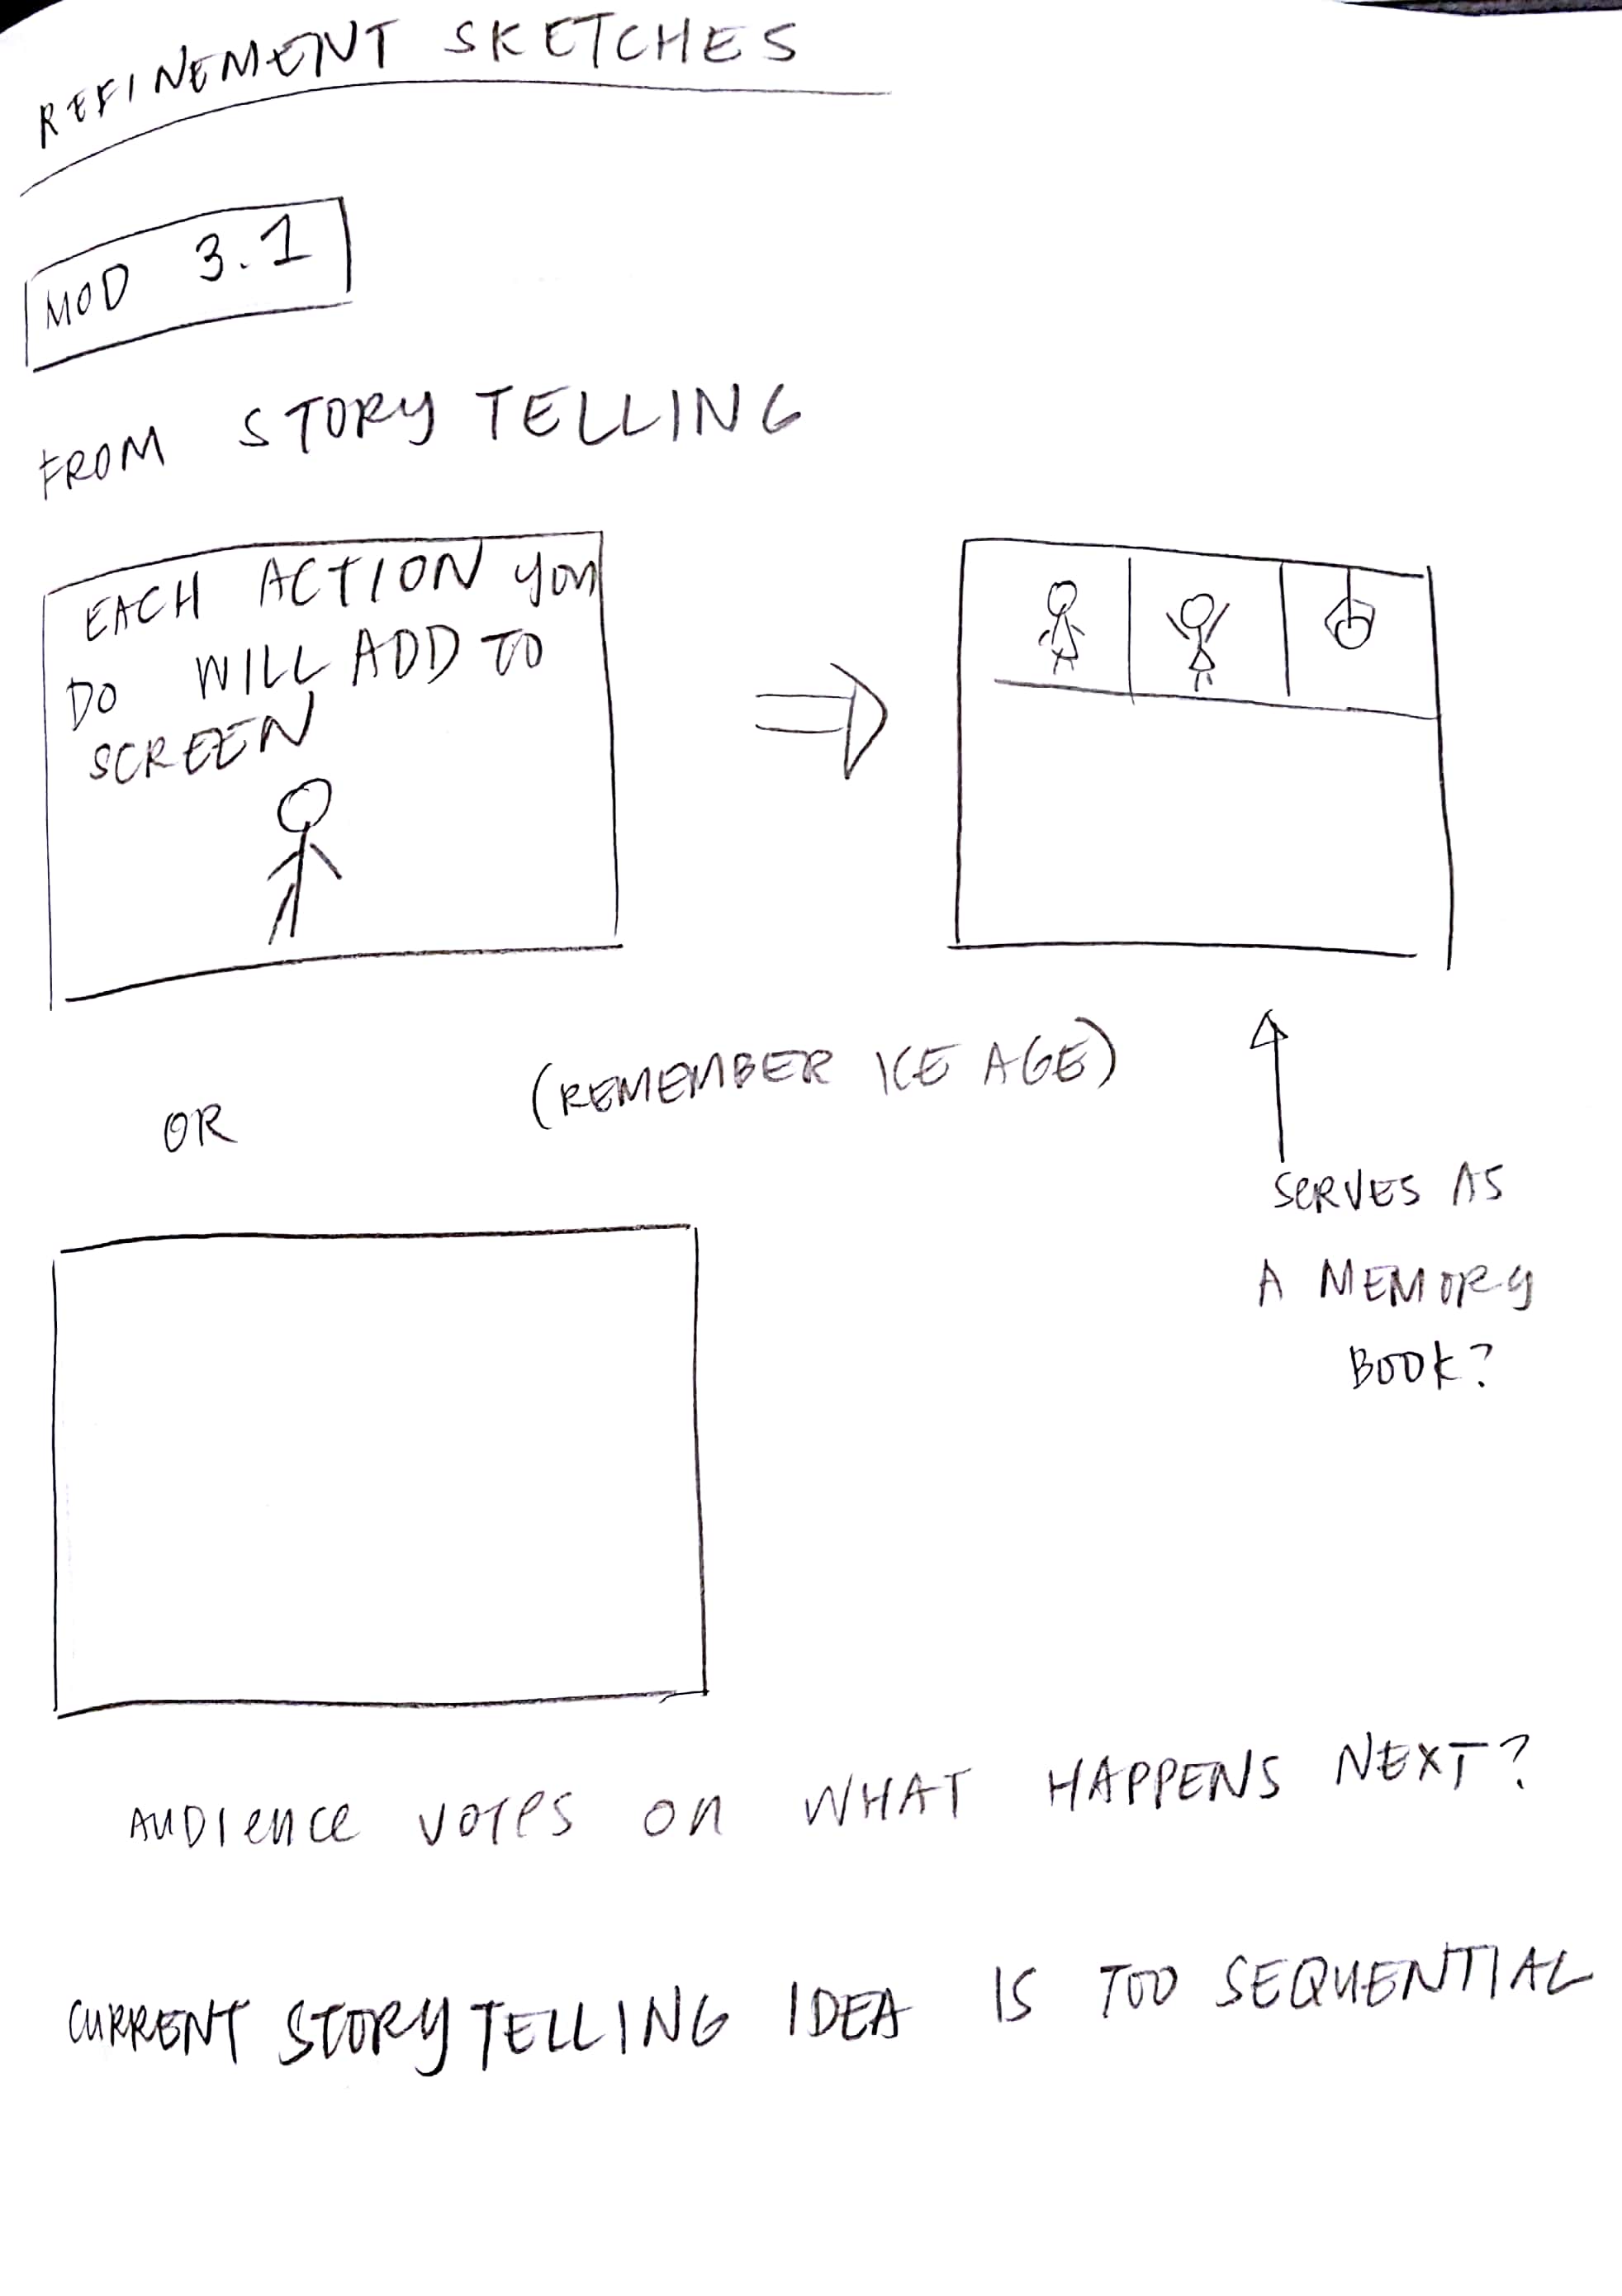 REFINEMENT SKETCHES
MOD 3.1
FROM STORY TELLING
EACH ACTION you
DO WILL ADD TO
SCREEN
(REMEMBER ICE AGE)
OR
SERVES AS
A MEMORY
BOOK?
AUDIENCE VOTES ON WHAT HAPPENS NEXT?
CURRENT STORY TELLING IDEA IS TOO SEQUENTIAL